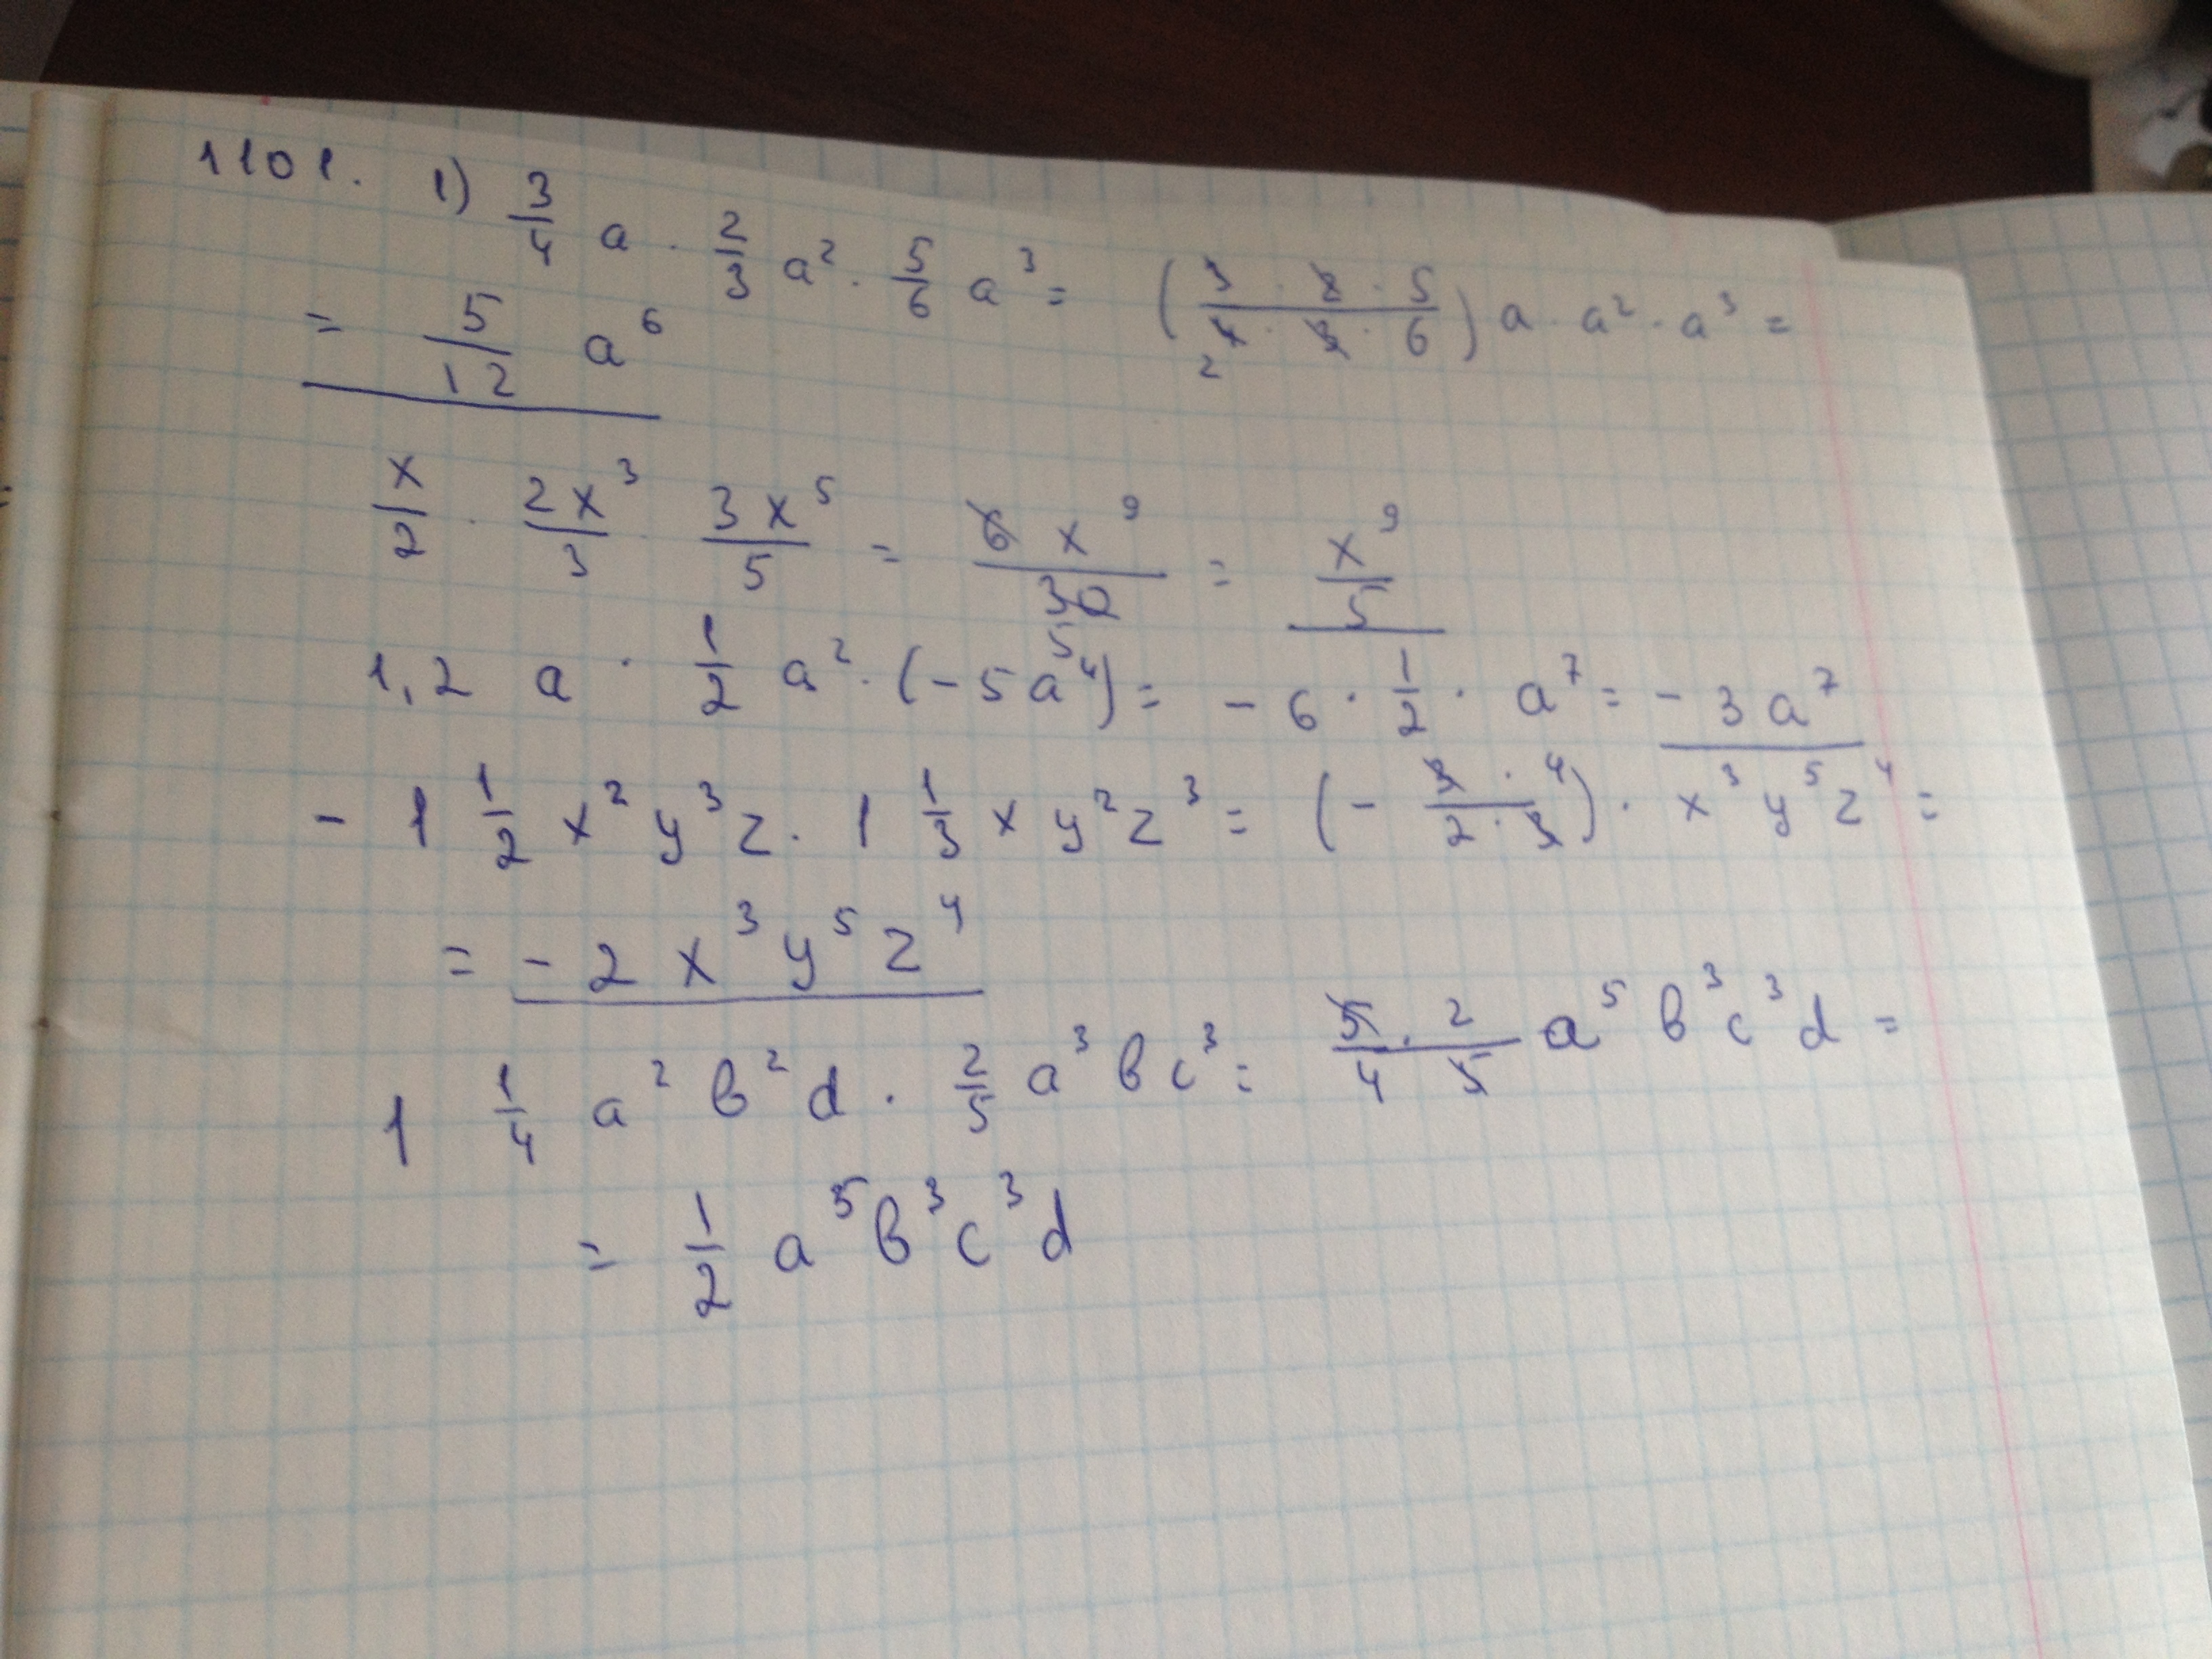 1101. 1) 3/4 a · 2/3 a² · 5/6 a³ = (3 · 2 · 5 / 4 · 3 · 6) a · a² · a³ =
2
= 5/12 a⁶
x/2 · 2x³/3 · 3x⁵/5 = 6x⁹/30 = x⁹/5
5
1,2 a · 1/2 a² · (-5a⁴) = -6 · 1/2 · a⁷ = -3a⁷
- 1 1/2 x² y³ z · 1 1/3 x y² z³ = (- 3 · 4 / 2 · 3) · x³ y⁵ z⁴ =
= -2 x³ y⁵ z⁴
1 1/4 a² b² d · 2/5 a³ b c³ = 5 · 2 / 4 · 5 a⁵ b³ c³ d =
= 1/2 a⁵ b³ c³ d